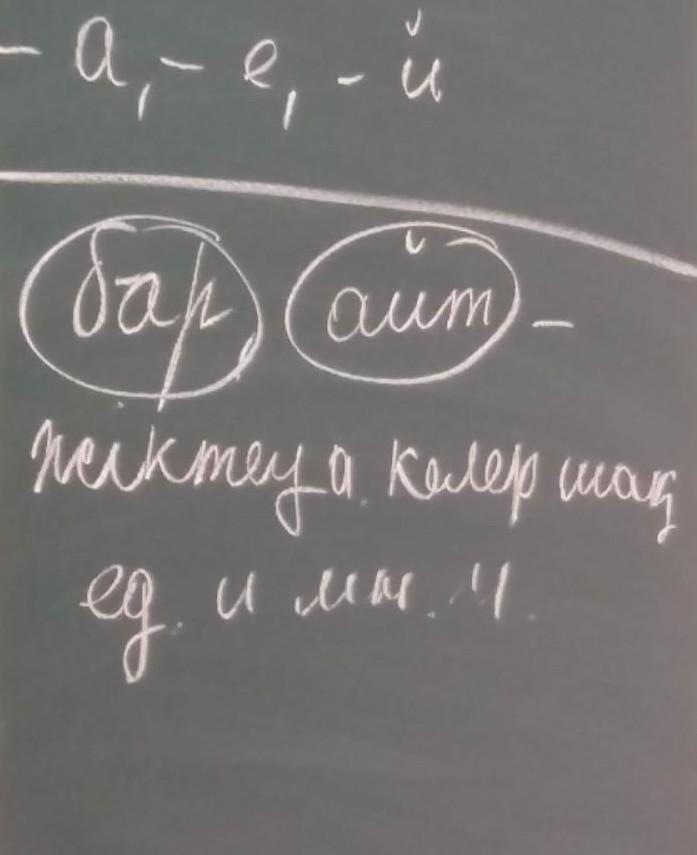 - а, - е, - й
бар айт -
жіктеу а. келер шақ
ед. и мн. ч.